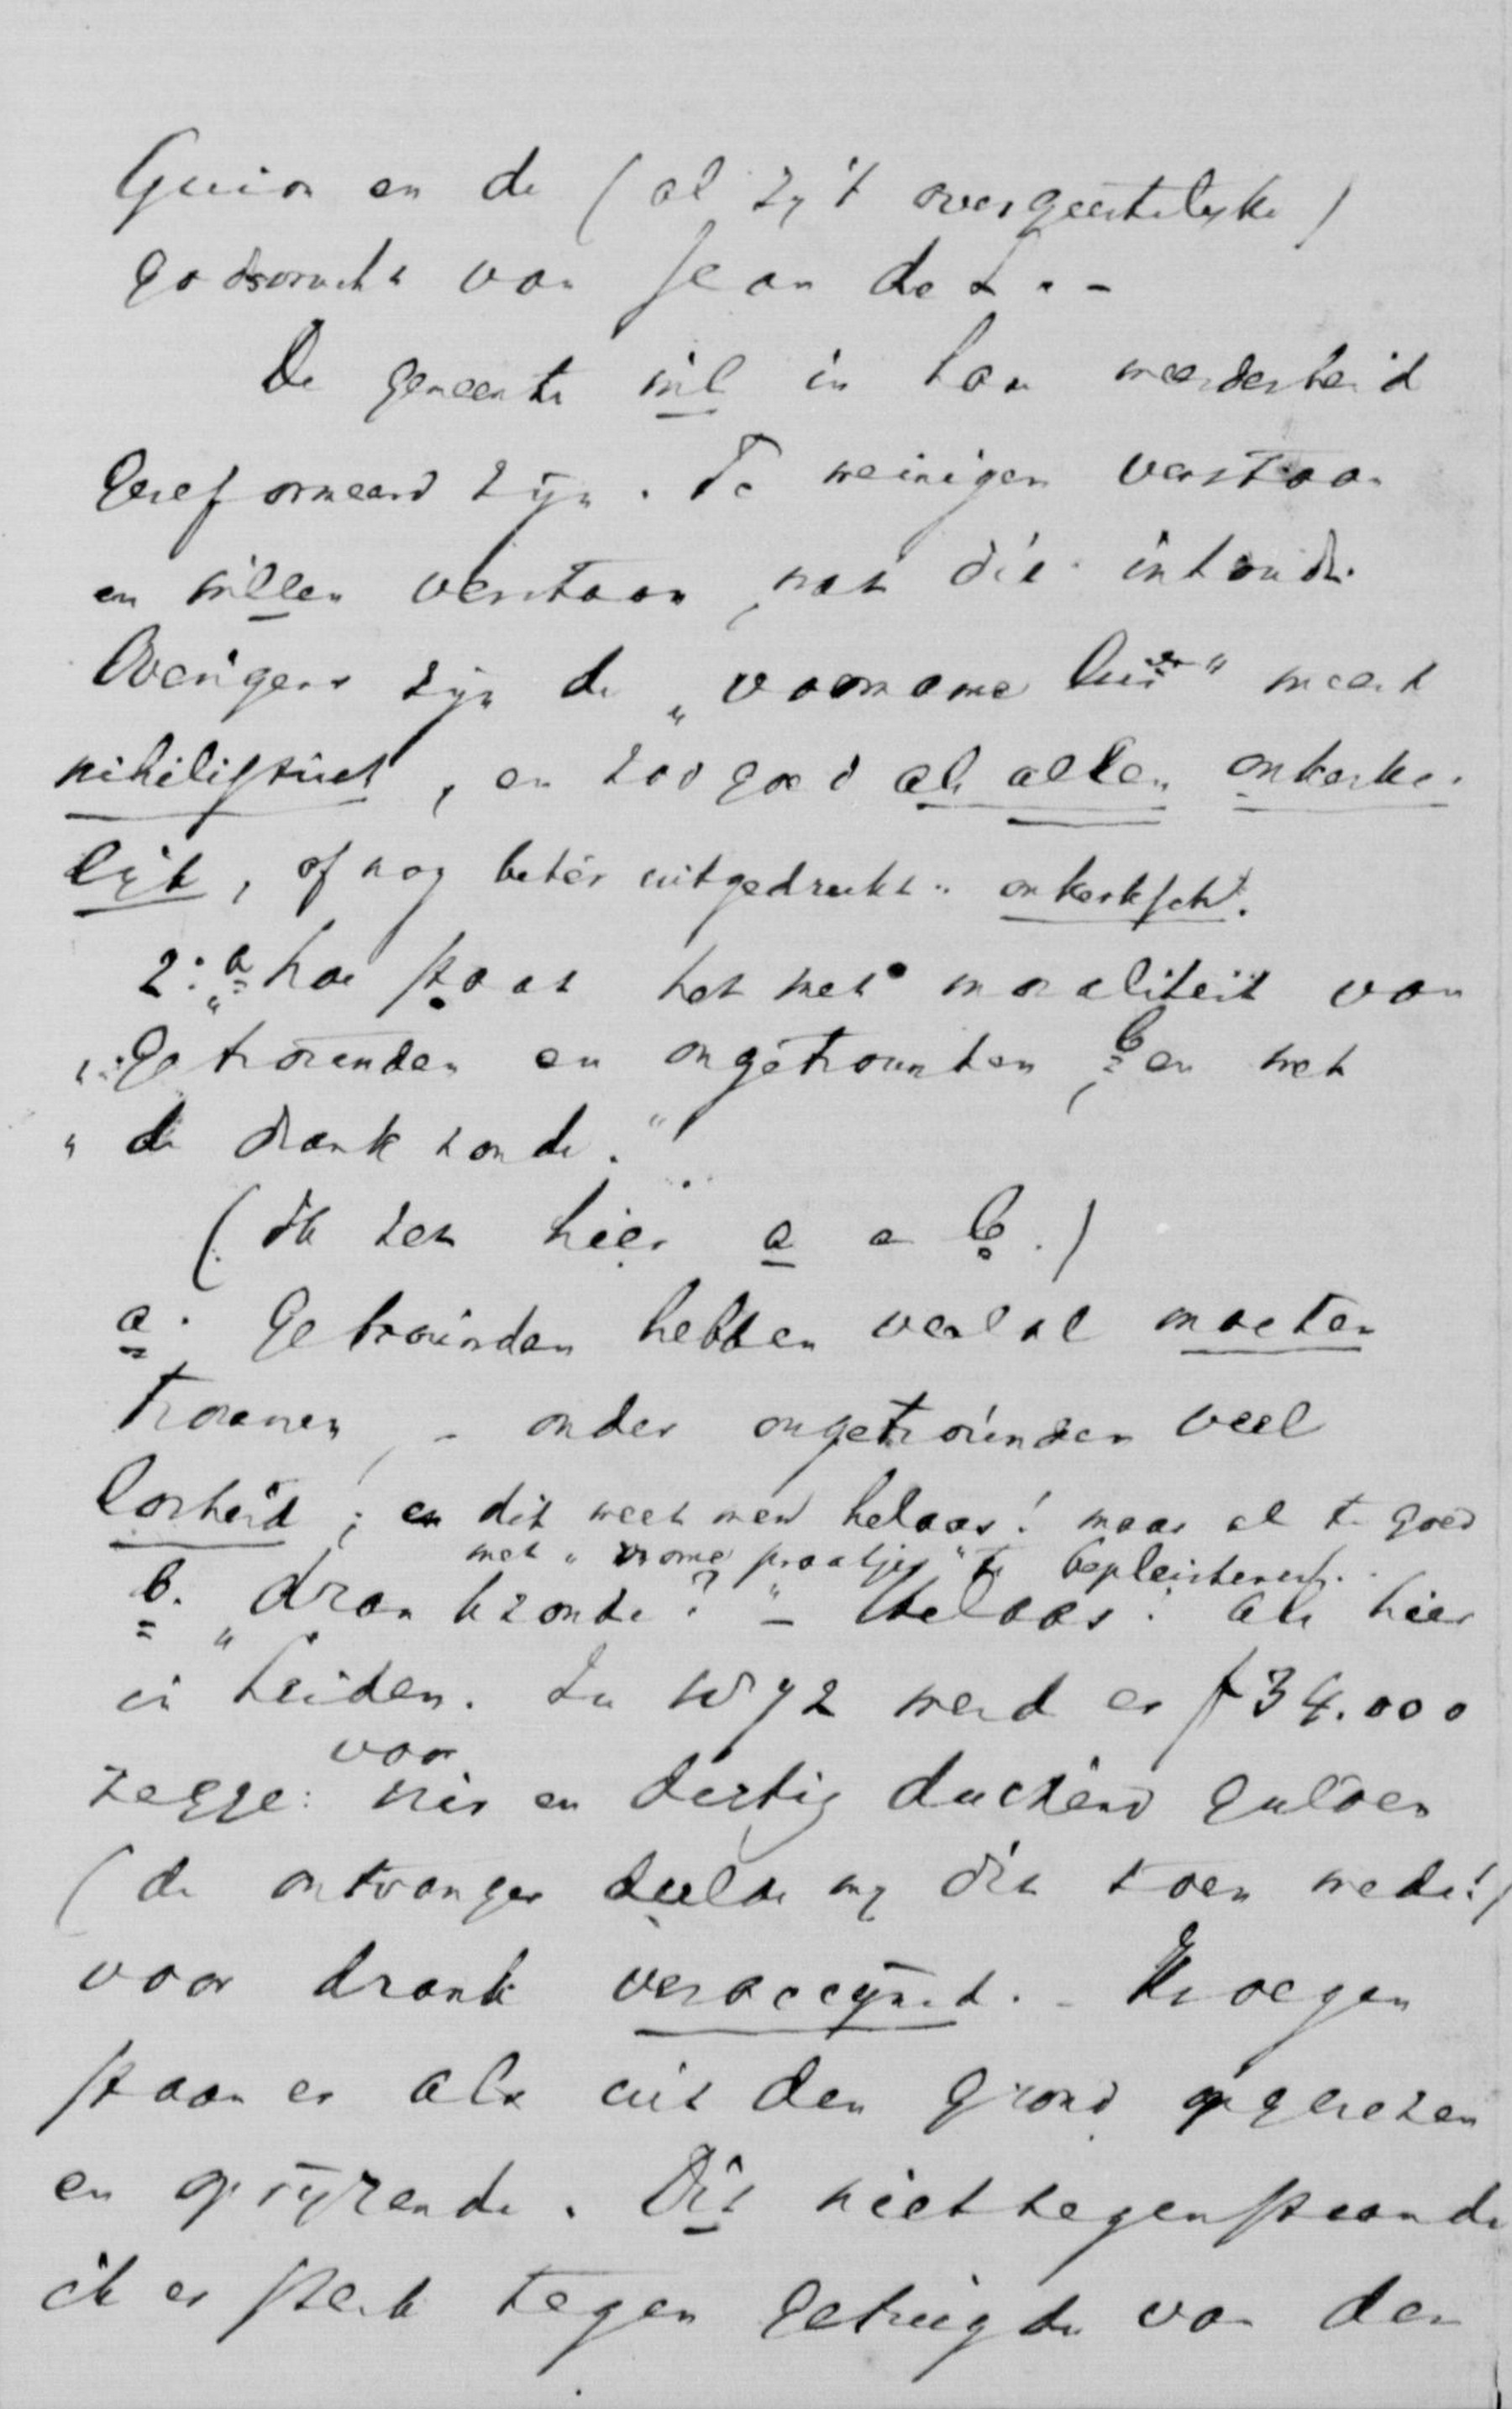 Guion en de (al zy 't overgeestelyke)
godsvrucht van Jean de L. –
De gemeente wil in haar meerderheid
Gereformeerd zijn. Te weinigen verstaan
en willen verstaan, wat die inhoudt.
Overigens zijn de „voorname lui" meest
nihilistisch, en zoo goed als allen onkerke-
lijk, of nog beter uitgedrukt: onkerksch.
2: „a hoe staat het met moraliteit van
„Getrouwden en ongetrouwden, b en met
„de drankzonde."
(Ik zet hier a en b.)
a. Getrouwden hebben veelal moeten
trouwen, – onder ongetrouwden veel
losheid; en dit weet men helaas! maar al te goed
met „vrome praatjes" te bepleisteren.
b. „drankzonde?" – Helaas! als hier
in Leiden. In 1892 werd er f 34.000
zegge: vier en dertig duizend gulden
voor
(de ontvanger deelde my dit toen mede!)
voor drank veraccijnsd. – Kroegen
staan er als uit den grond opgerezen
en oprijzende. Dit niettegenstaande
ik er sterk tegen getuigde van den